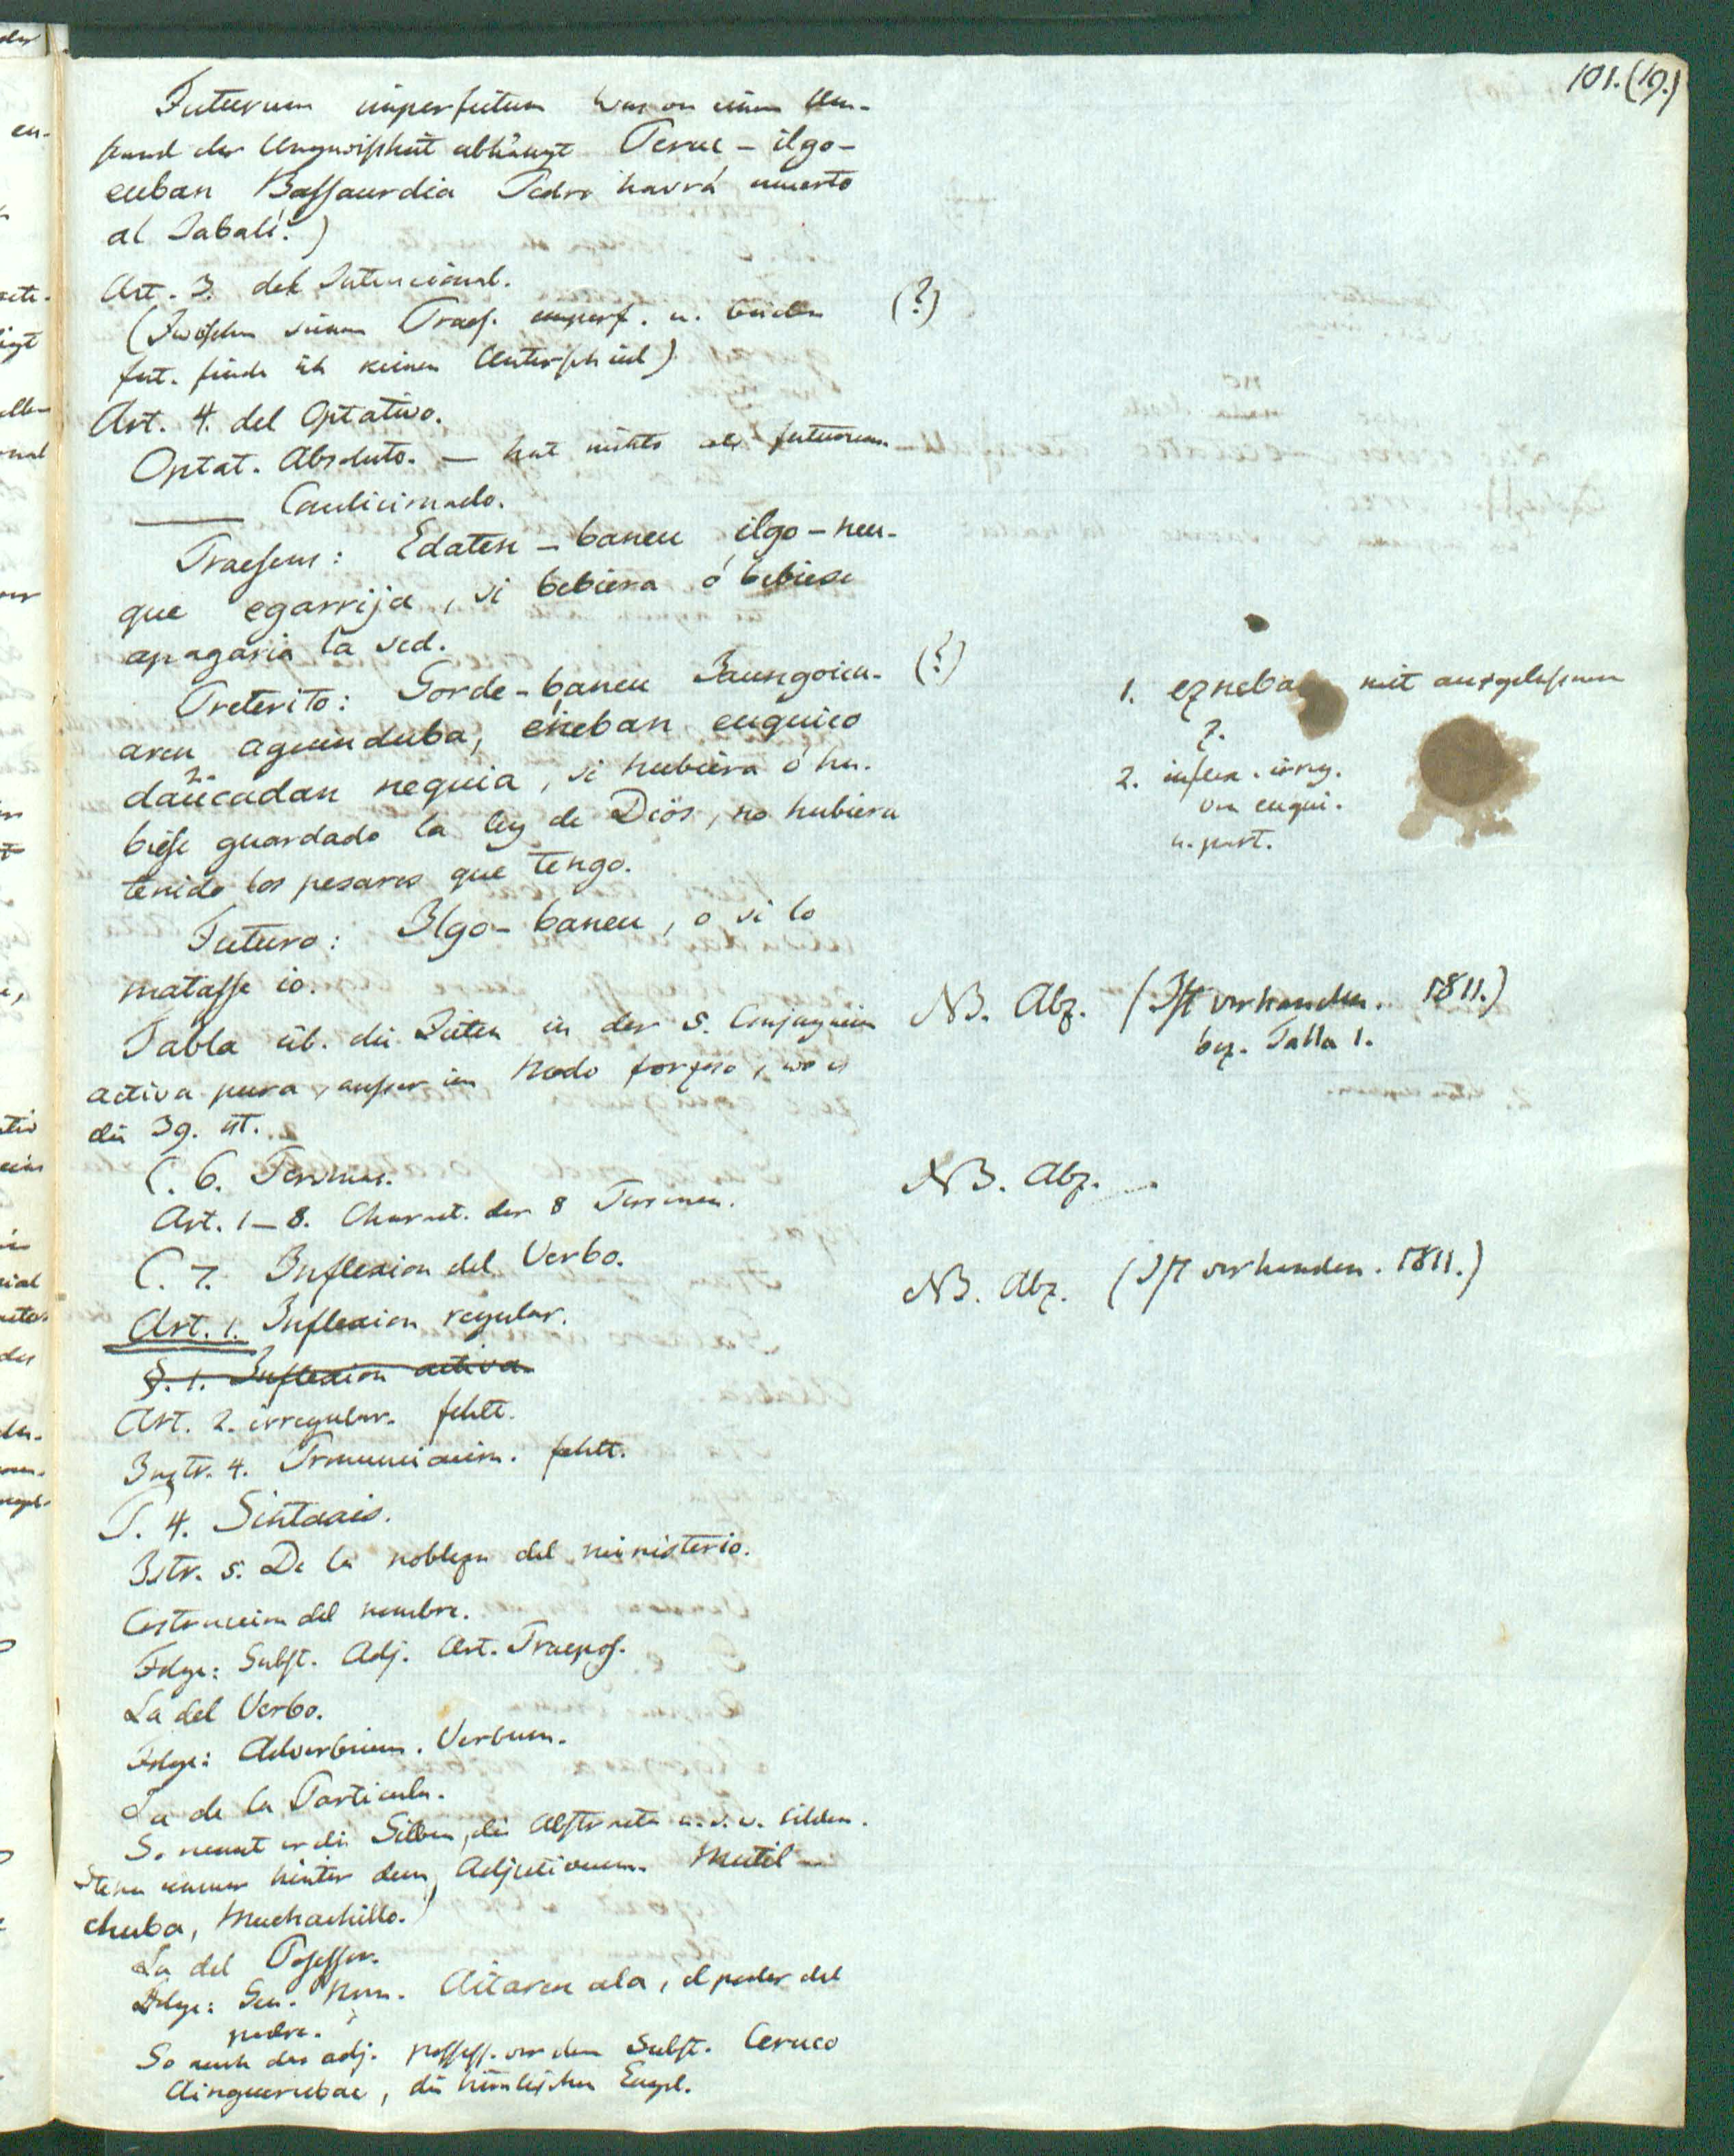 101.(19.)
Futurum imperfectum was von einem Um-
stand der Ungewisheit abhängt Peruc – ilgo-
euban Bassaurdia Pedro havrá muerto
al Jabalí.)
Art. 3. del Intencional.
(Zwischen seinem Praes. imperf. u. beiden
fut. finde ich keinen Unterschied)
(?)
Art. 4. del Optativo.
Optat. Absoluto. — hat nichts als futurum.
——— Condicionado.
Praesens: Edaten – baneu ilgo – neu-
que egarrija, si bebiera ó bebiese
apagaria la sed.
Preterito: Gorde – baneu Jaungoicu-
(?)
aren aguinduba, eneban euquico
daucadan nequia, si hubiera ó hu-
biese guardado la ley de Dios, no hubiera
tenido los pesares que tengo.
1. ezneba mit ausgelassenem
z.
2. inflex. irreg.
von euqui.
u. part.
Futuro: Ilgo – baneu, o si lo
matasse io.
Tabla üb. die in der 5. Conjugacion
activa pura, ausser im Modo forzoso, wo es
die 39. ist.
NB. Abz. (Ist vorhanden. 1811.)
bez. Tabla 1.
C. 6. Personas.
NB. Abz.
Art. 1–8. Charact. der 8 Personen.
C. 7. Inflexion del Verbo.
NB. Abz. (Ist vorhanden. 1811.)
Art. 1. Inflexion regular.
§. 1. Inflexion activa.
Art. 2. irregular. fehlt.
Instr. 4. Pronunciacion. fehlt.
P. 4. Sintaxis.
Istr. 5. De la nobleza del ministerio.
Costruccion del nombre.
Folge: Subst. Adj. Art. Praepos.
La del Verbo.
Folge: Adverbium. Verbum.
La de la Particula.
So nennt er die Silben, die Abstracta u.s.w. bilden.
Stehn immer hinter dem Adjectivum. Mutil –
chuba, Muchachillo.)
La del Possessor.
Folge: Gen. Nom. Aitaren ala, el poder del
padre.
So auch das adj. possess. vor dem Subst. Ceruco
Ainguerubac, die himlischen Engel.